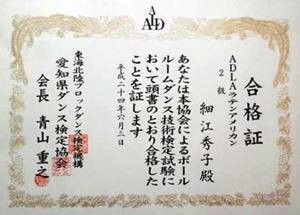 ADLA
合格証
ADLAラテンアメリカン
2級
細江秀子殿
あなたは本協会によるボール
ルームダンス技術検定試験に
おいて頭書のとおり合格した
ことを証します
平成二十四年六月三日
東海北陸ブロックダンス検定機構
愛知県ダンス検定協会
会長 青山重之